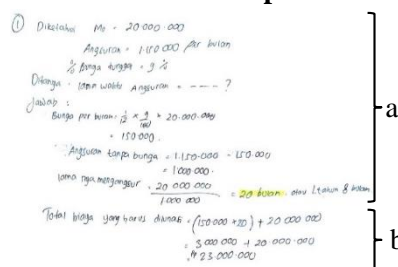 ① Diketahui M₀ = 20.000.000
Angsuran = 1.150.000 per bulan
% bunga tunggal = 9 %
Ditanya - lama waktu Angsuran = ---- ?
Jawab :
Bunga per bulan : 1/12 × 9/100 × 20.000.000
= 150.000.
Angsuran tanpa bunga = 1.150.000 - 150.000
= 1.000.000
lama nya mengangsur = 20 000 000 / 1.000 000 = 20 bulan. atau 1 tahun 8 bulan
Total biaya yang harus dilunasi = (150.000 × 20) + 20 000 000
= 3 000 000 + 20 000 000
= 23 000.000
a
b